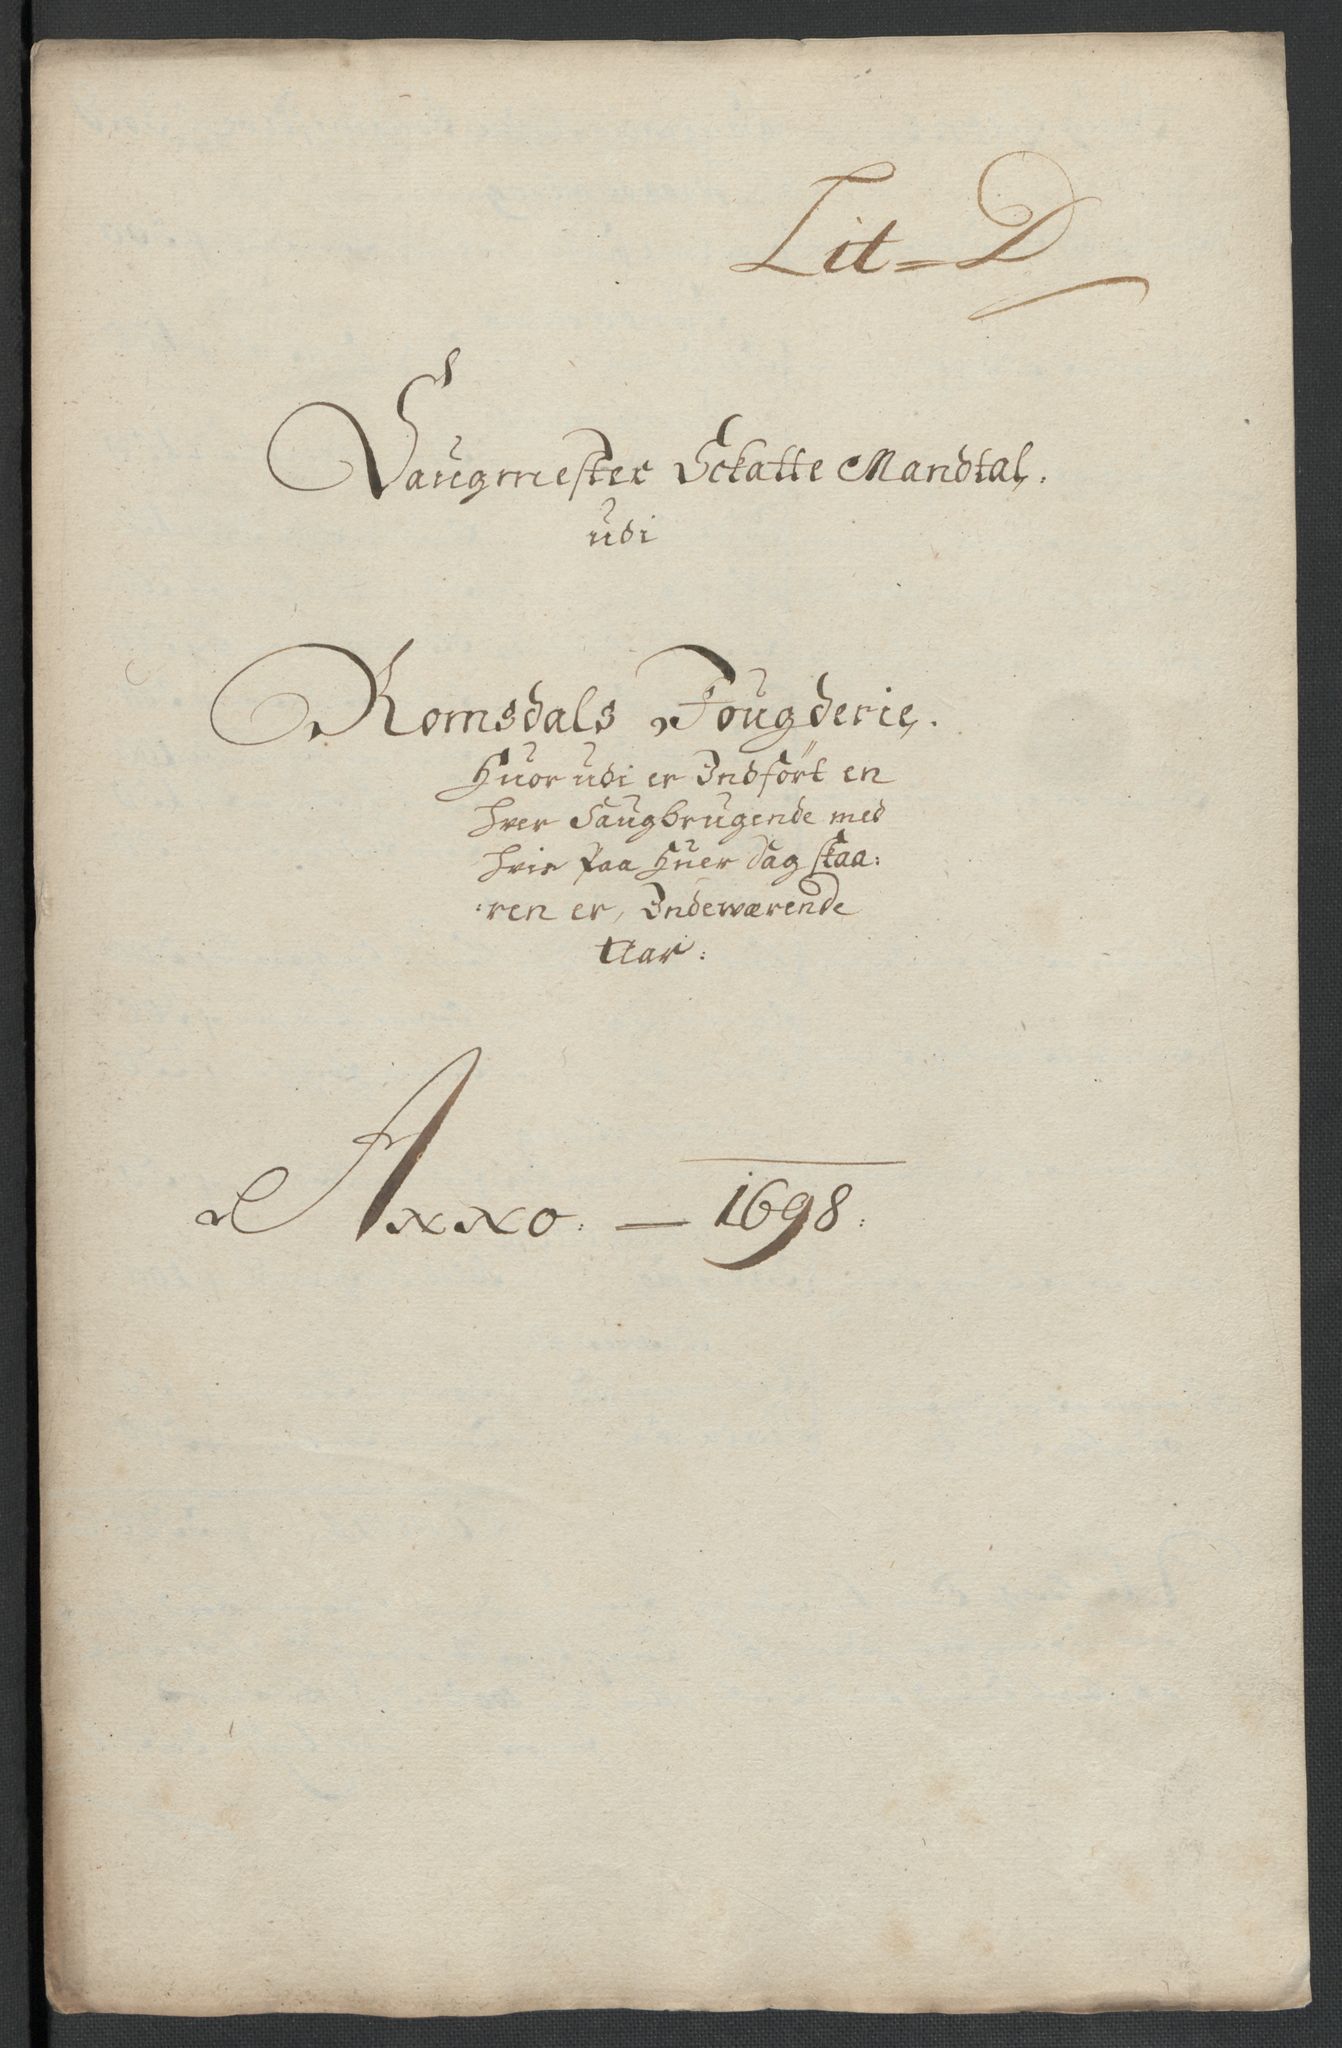 Lit=D
Saugmester Sckatte Mandtal.
udi
Romsdals Fougderie.
Huor udi er Indført en
hver Saugbrugende med
hvis paa Huer dag skaa:
:ren er, Indeværende
Aar:
Anno. — 1698: